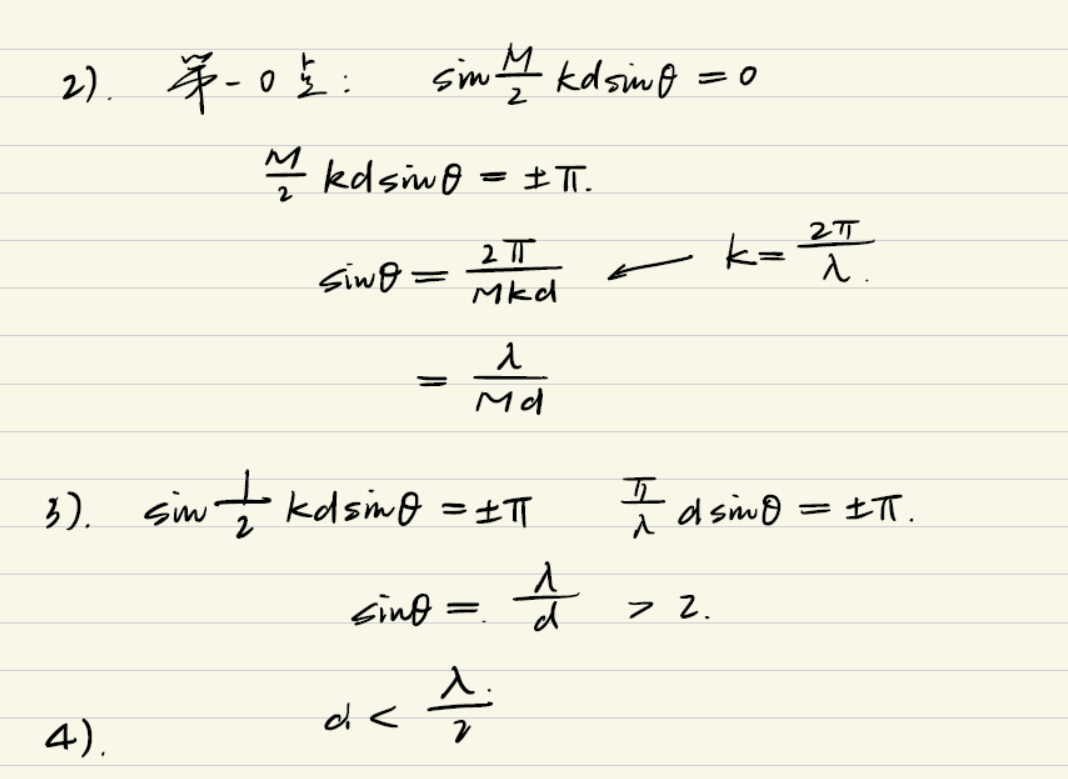 2). 第一0点: sin M/2 kd sinθ = 0
M/2 kd sinθ = ±π.
sinθ = 2π/Mkd ← k = 2π/λ.
= λ/Md
3). sin 1/2 kd sinθ = ±π π/λ d sinθ = ±π.
sinθ = λ/d > 2.
d < λ/2
4).